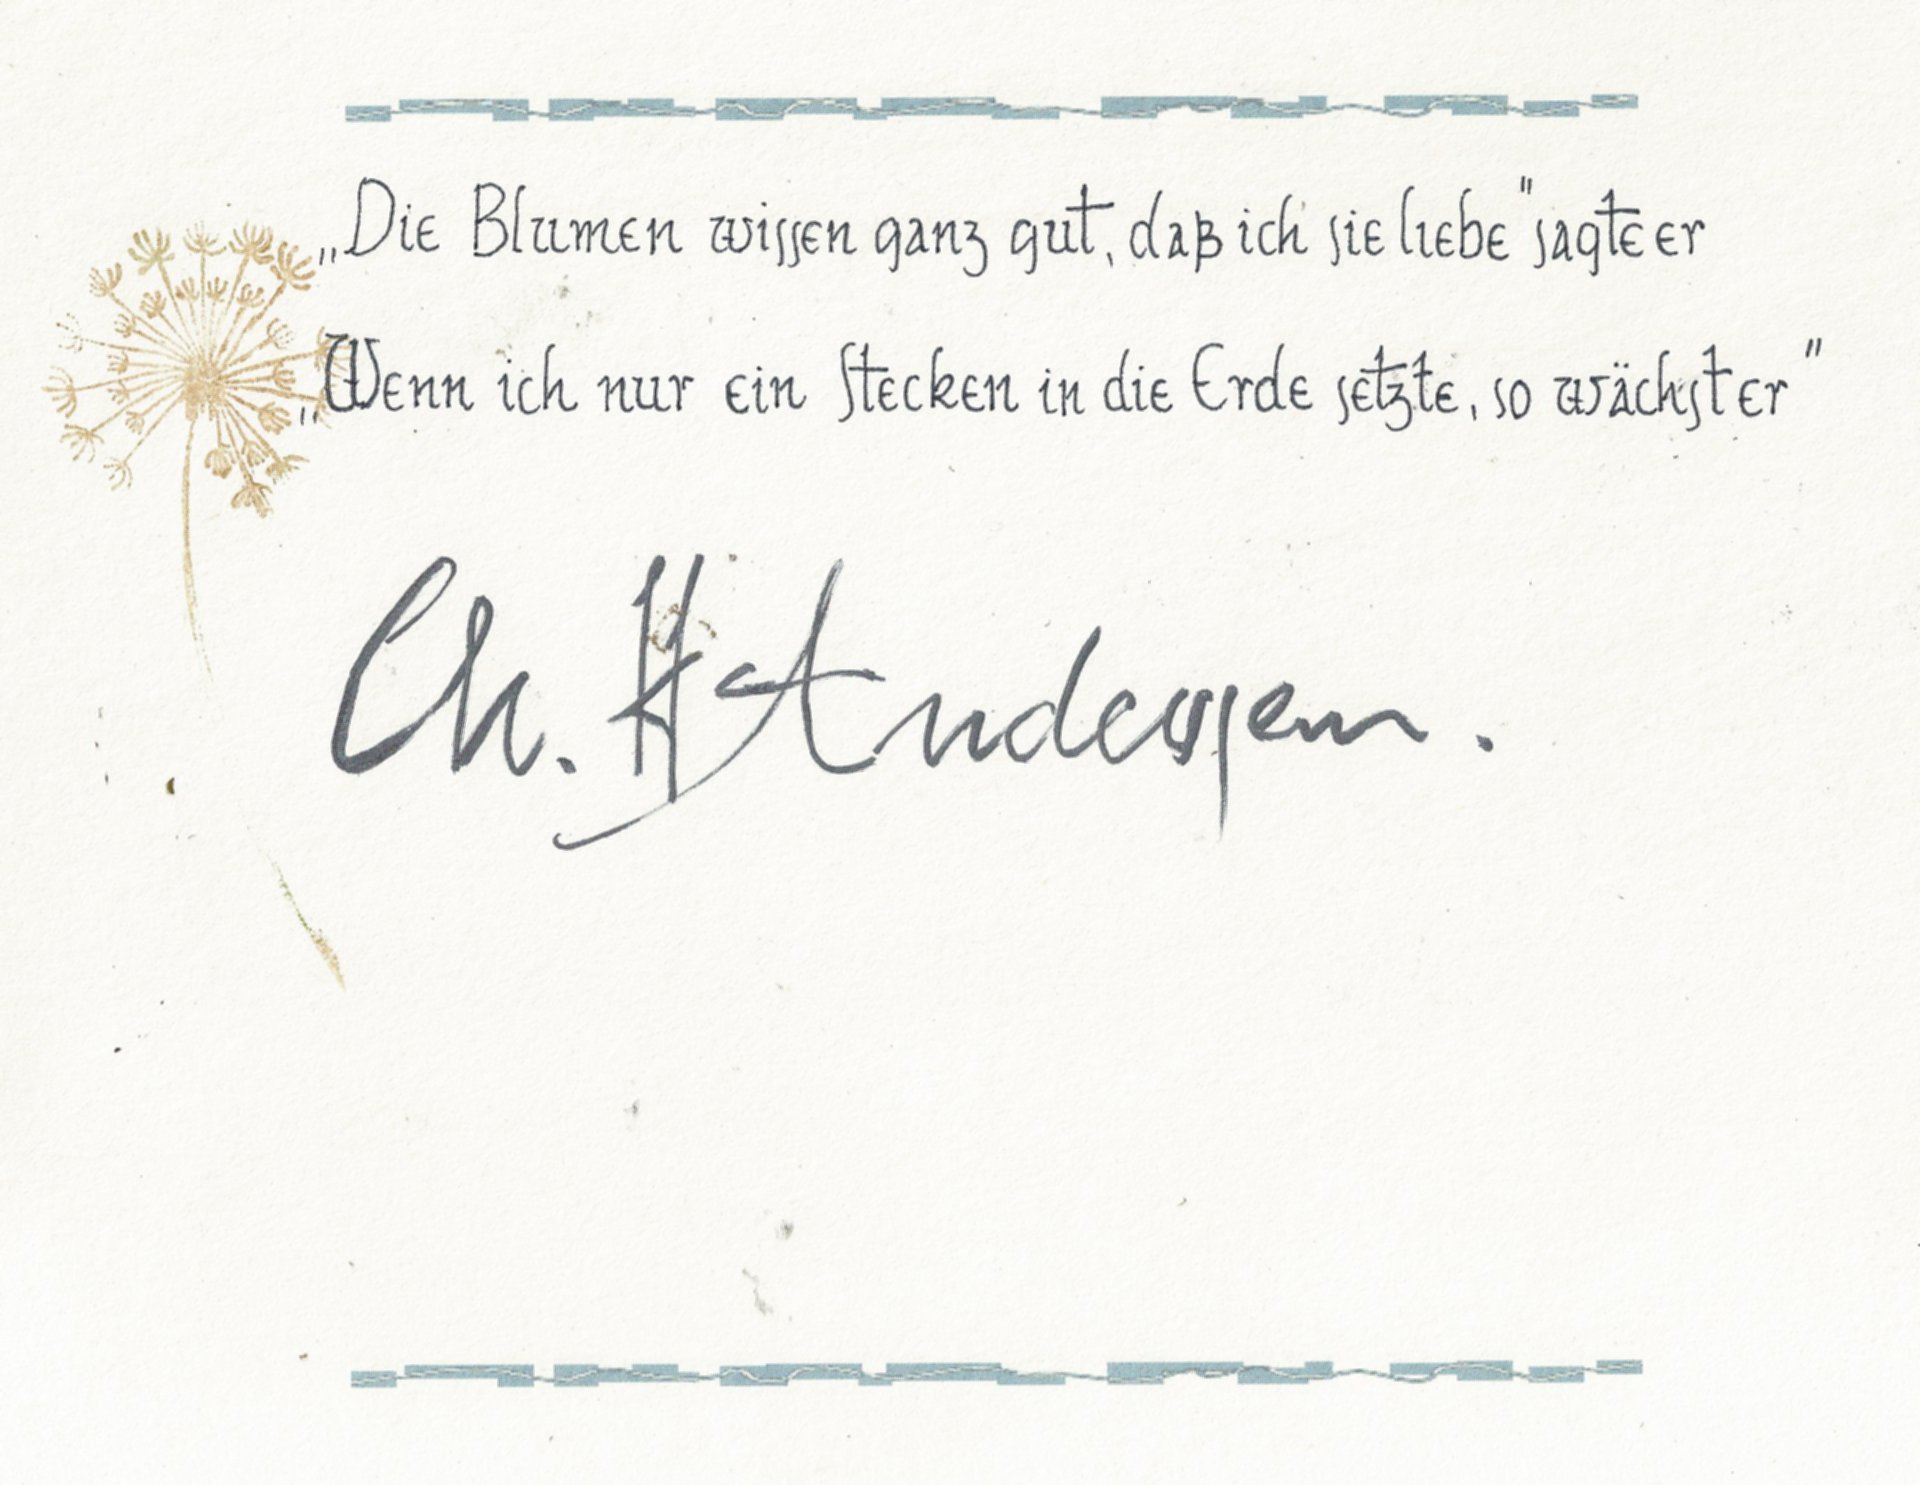 „Die Blumen wissen ganz gut, daß ich sie liebe" sagte er
„Wenn ich nur ein Stecken in die Erde setzte, so wächst er"
Ch. H. Andersen.